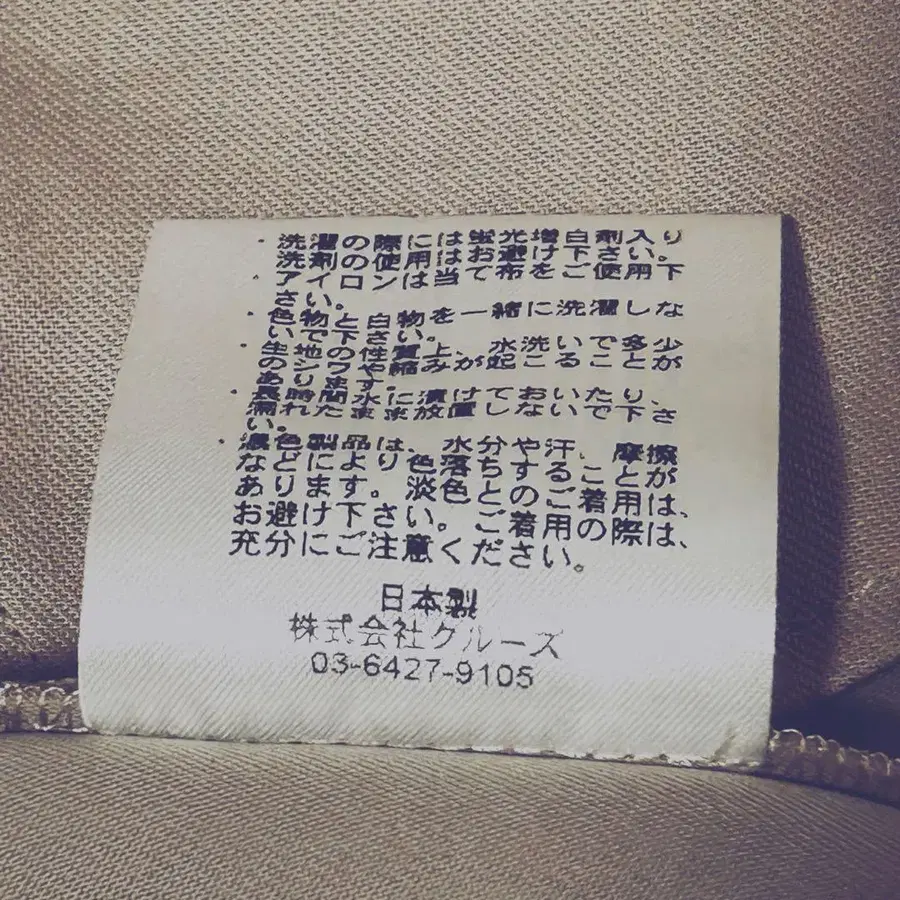 ・洗濯の際には蛍光増白剤入り
洗剤の使用はお避け下さい。
・アイロンは当て布をご使用下
さい。
・色物と白物を一緒に洗濯しな
いで下さい。
・生地の性質上、水洗いで多少
のシワや縮みが起こることが
あります。
・長時間水に漬けておいたり、
濡れたまま放置しないで下さ
い。
・濃色製品は、水分や汗、摩擦
などにより色落ちすることが
あります。淡色とのご着用は、
お避け下さい。ご着用の際は、
充分にご注意ください。
日本製
株式会社クルーズ
03-6427-9105